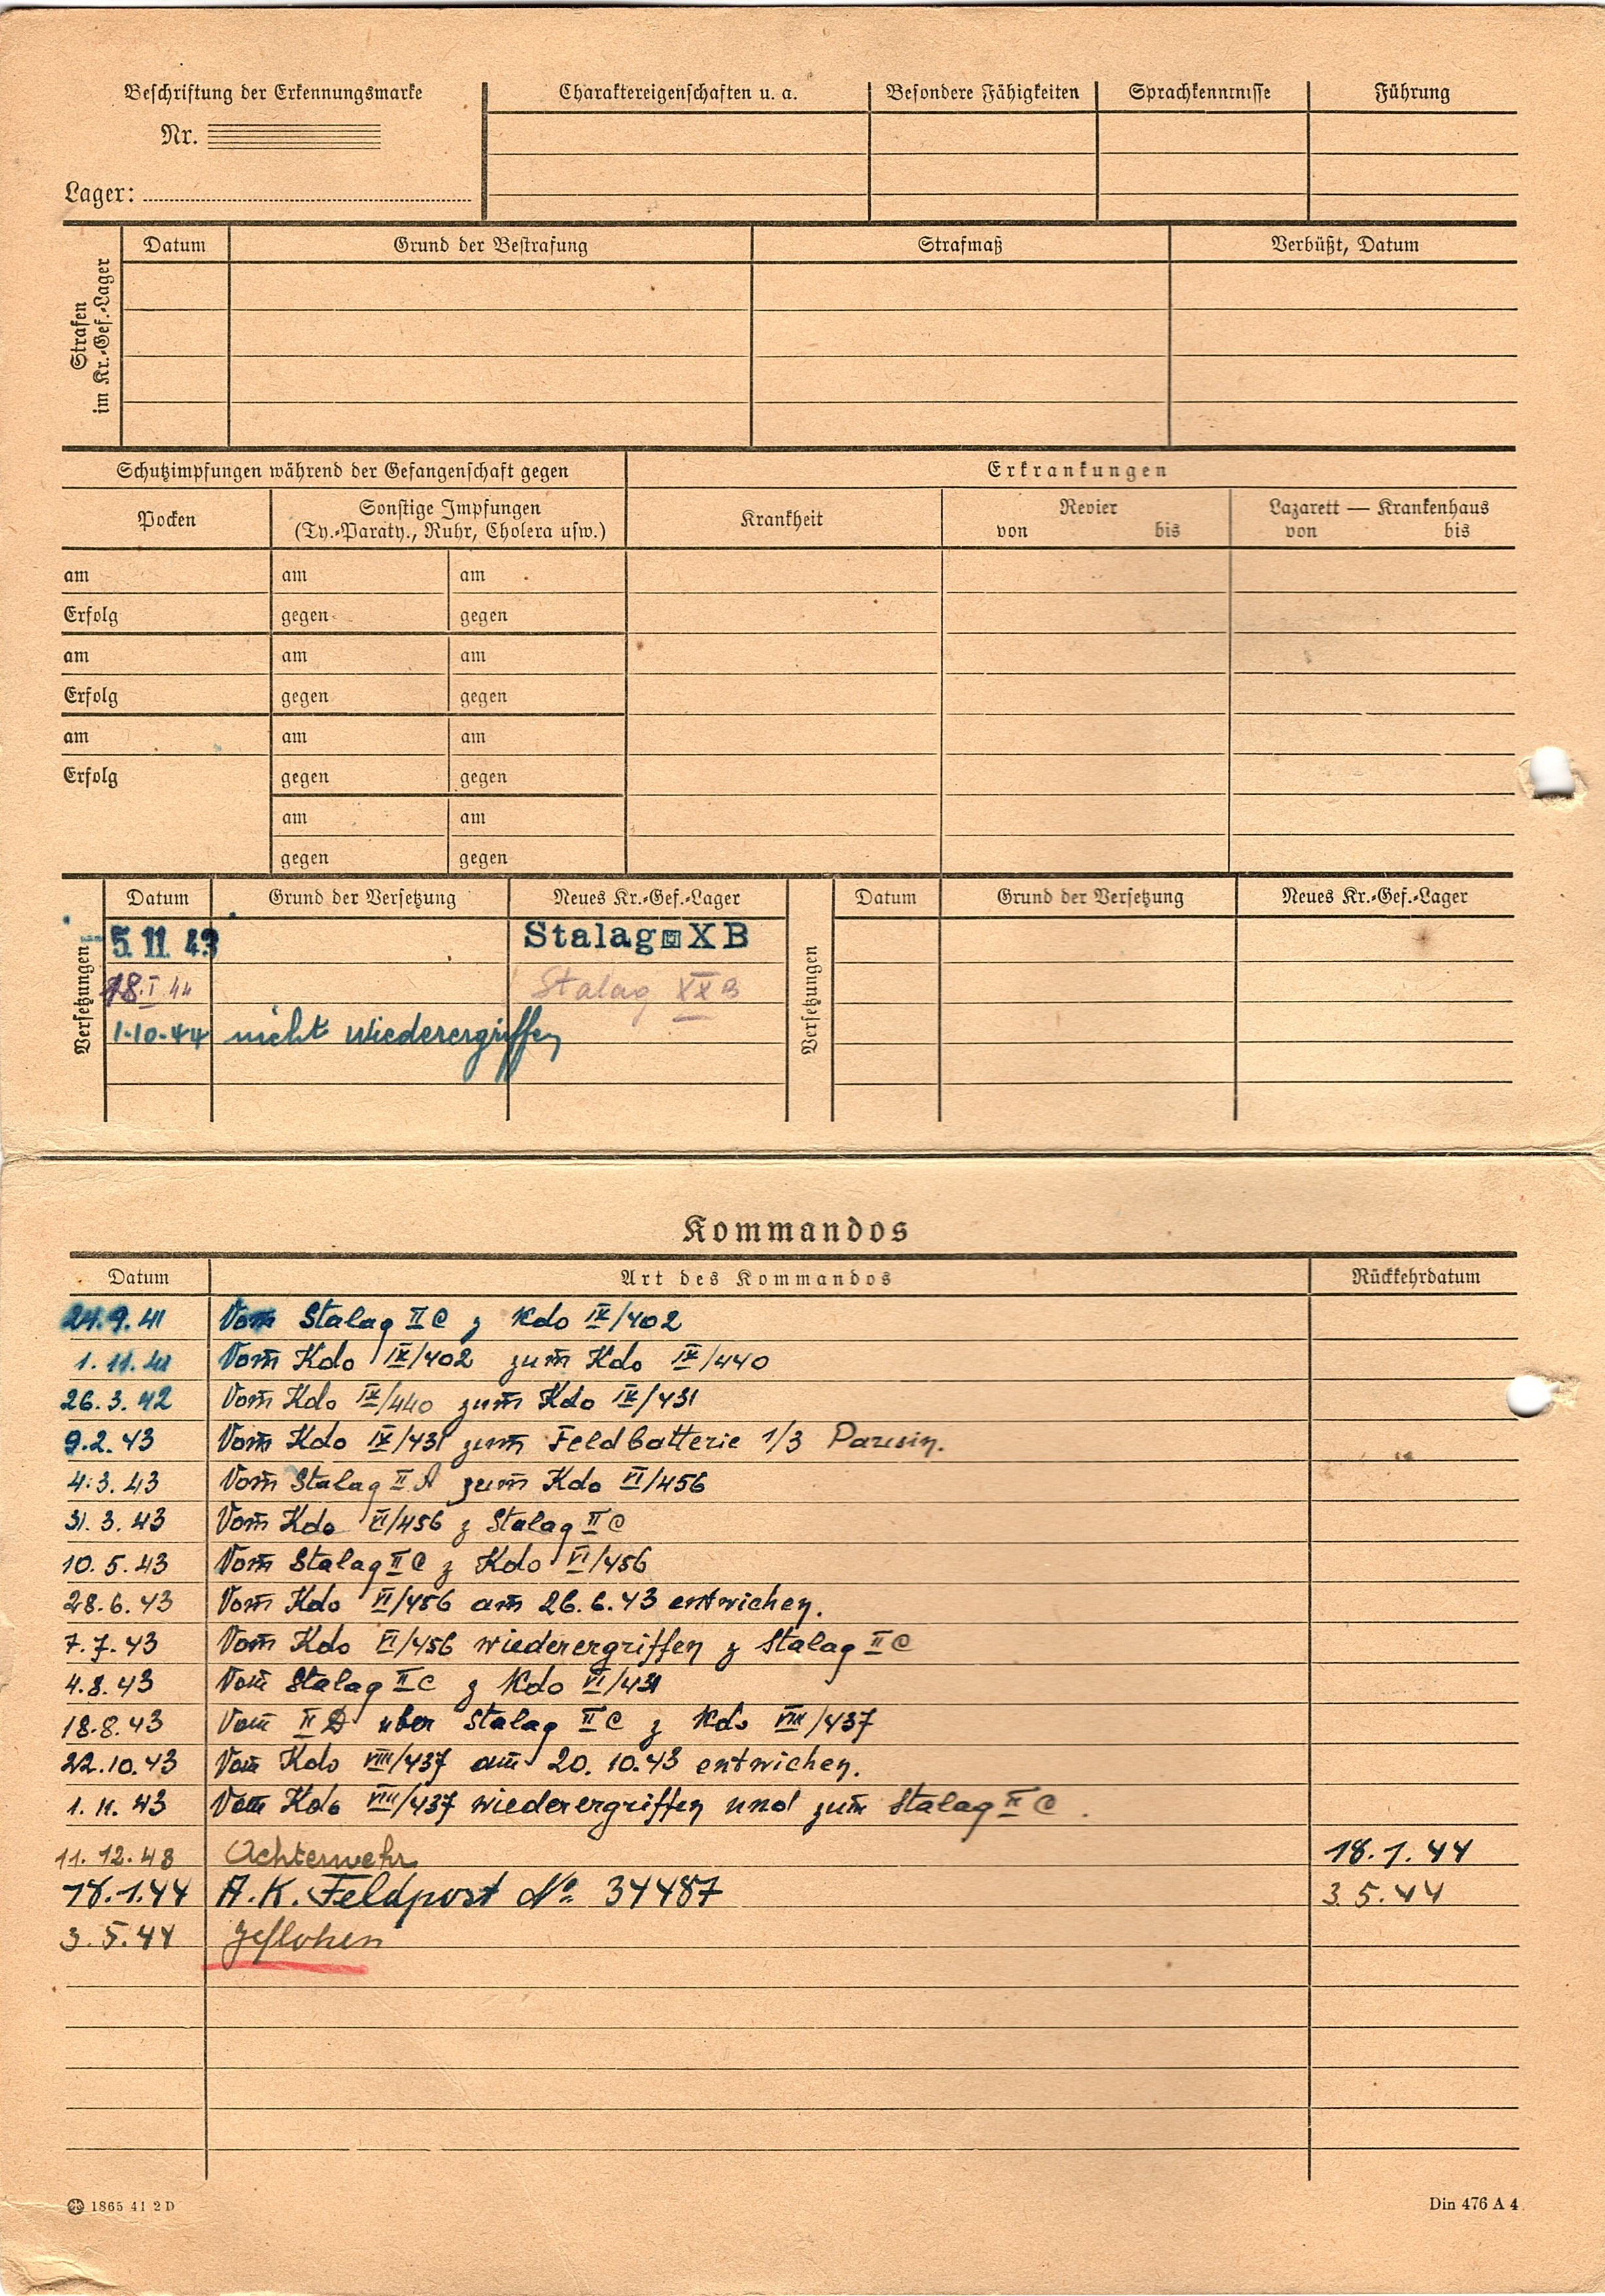 Beschriftung der Erkennungsmarke
Nr.
Lager:
Charaktereigenschaften u. a.
Besondere Fähigkeiten
Sprachkenntnisse
Führung
Strafen
im Kr.-Gef.-Lager
Datum
Grund der Bestrafung
Strafmaß
Verbüßt, Datum
Schutzimpfungen während der Gefangenschaft gegen
Erkrankungen
Pocken
Sonstige Impfungen
(Ty.-Paraty., Ruhr, Cholera usw.)
Krankheit
Revier
von bis
Lazarett — Krankenhaus
von bis
am am am
Erfolg gegen gegen
am am am
Erfolg gegen gegen
am am am
Erfolg gegen gegen
am am
gegen gegen
Versetzungen
Datum Grund der Versetzung Neues Kr.-Gef.-Lager
5. 11. 43 Stalag XB
18. I 44 Stalag XXB
1-10-44 nicht wiederergriffen
Versetzungen
Datum Grund der Versetzung Neues Kr.-Gef.-Lager
Kommandos
Datum Art des Kommandos Rückkehrdatum
24. 9. 41 Vom Stalag II C z Kdo IX/402
1. 11. 41 Vom Kdo IX/402 zum Kdo IX/440
26. 3. 42 Vom Kdo IX/440 zum Kdo IX/431
9. 2. 43 Vom Kdo IX/431 zum Feldbatterie 1/3
4. 3. 43 Vom Stalag II A zum Kdo VI/456
31. 3. 43 Vom Kdo VI/456 z Stalag II C
10. 5. 43 Vom Stalag II C z Kdo VI/456
28. 6. 43 Vom Kdo VI/456 am 26. 6. 43 entwichen.
7. 7. 43 Vom Kdo VI/456 wiederergriffen z Stalag II C
4. 8. 43 Vom Stalag II C z Kdo VI/431
18. 8. 43 Vom II D über Stalag II C z Kdo VIII/437
22. 10. 43 Vom Kdo VIII/437 am 20. 10. 43 entwichen.
1. 11. 43 Vom Kdo VIII/437 wiederergriffen und zum Stalag II C.
11. 12. 43 Achterwehr 18. 1. 44
18. 1. 44 A. K. Feldpost No 34487 3. 5. 44
3. 5. 44 geflohen
1865 41 2 D
Din 476 A 4